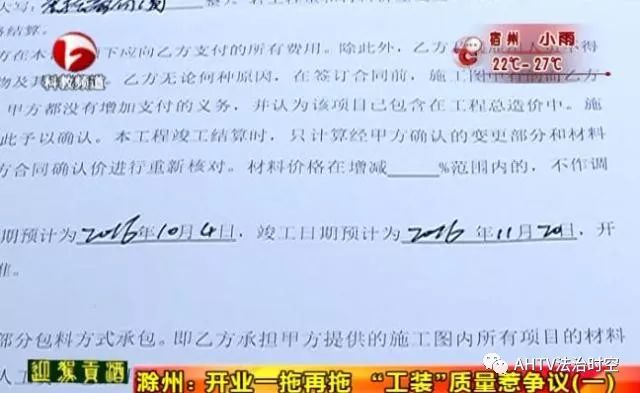 大写：
整
格结算。
方在本
下应向乙方支付的所有费用。除此外，乙方
不得
物及其
乙方无论何种原因，在签订合同前，施工图中有的而乙方
甲方都没有增加支付的义务，并认为该项目已包含在工程总造价中。施
此予以确认。本工程竣工结算时，只计算经甲方确认的变更部分和材料
方合同确认价进行重新核对。材料价格在增减____%范围内的，不作调
期预计为2016年10月4日，竣工日期预计为2016年11月20日，开
准。
部分包料方式承包。即乙方承担甲方提供的施工图内所有项目的材料
人工
科教频道
宿州 小雨
22℃-27℃
迎驾贡酒
滁州：开业一拖再拖 “工装”质量惹争议(一)
AHTV法治时空